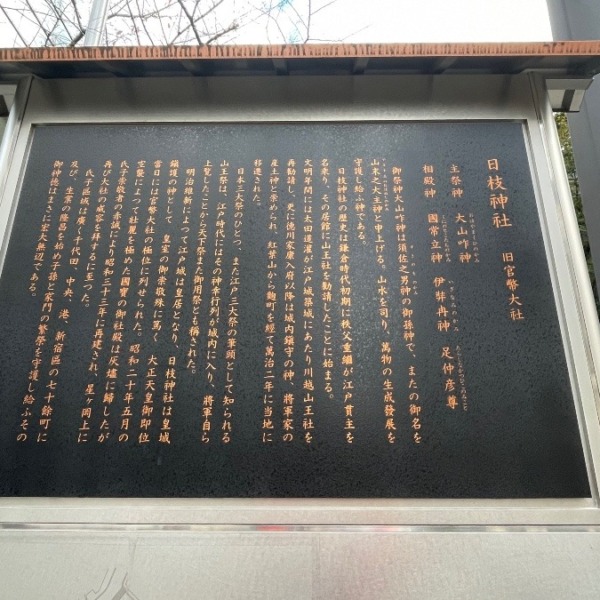 日枝神社 旧官幣大社
主祭神 大山咋神
相殿神 國常立神 伊弉冉神 足仲彦尊
御祭神大山咋神は須佐之男神の御孫神で、またの御名を
山末之大主神と申上げる。山水を司り、萬物の生成發展を
守護し給ふ神である。
日枝神社の歴史は鎌倉時代初期に秩父重繼が江戸貫主を
名乗り、その居館に山王社を勧請したことに始まる。
文明年間には太田道灌が江戸城築城にあたり川越山王社を
再勧請し、更に徳川家康入府以降は城内鎮守の神、將軍家の
産土神と崇められ、紅葉山から麹町を經て萬治二年に当地に
移遷された。
日本三大祭のひとつ、また江戸三大祭の筆頭として知られる
山王祭は、江戸時代にはその神幸行列が城内に入り、將軍自ら
上覧したことから天下祭また御用祭とも稱された。
明治維新によつて江戸城は皇居となり、日枝神社は皇城
鎮護の神として、皇室の御崇敬殊に篤く、大正天皇御即位
当日には官幣大社の極位に列せられた。昭和二十年五月の
空襲によつて壮麗を極めた國寶の御社殿は灰燼に歸したが
氏子崇敬者の赤誠により昭和三十三年に再建され、星ヶ岡上に
再び大社の威容を拝するに至つた。
氏子區域は廣く千代田、中央、港、新宿區の七十餘町に
及び、生業の隆昌を始め子孫と家門の繁榮を守護し給ふその
御神徳はまさに宏大無辺である。